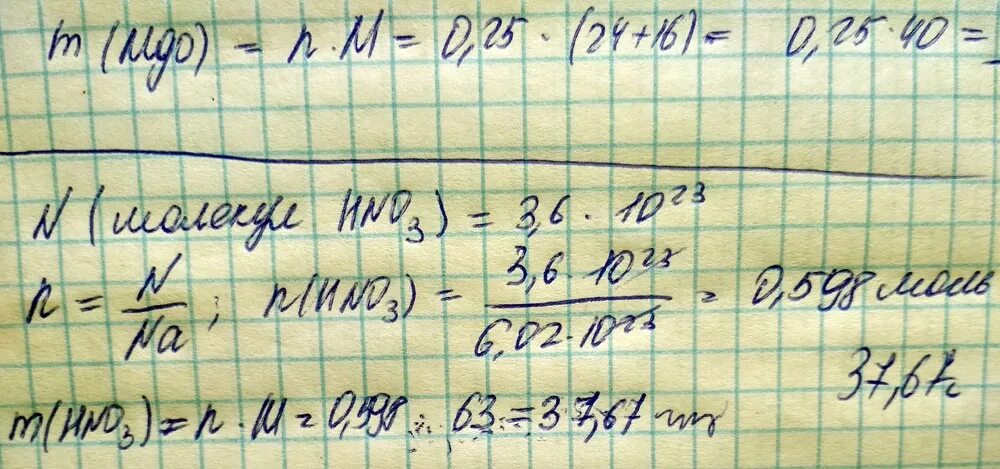 m (MgO) = n · M = 0,25 · (24+16) = 0,25 · 40 =
N (молекул HNO₃) = 3,6 · 10²³
n = N/Na ; n(HNO₃) = 3,6 · 10²³ / 6,02 · 10²³ = 0,598 моль
37,67г
m(HNO₃) = n · M = 0,598 · 63 = 37,67